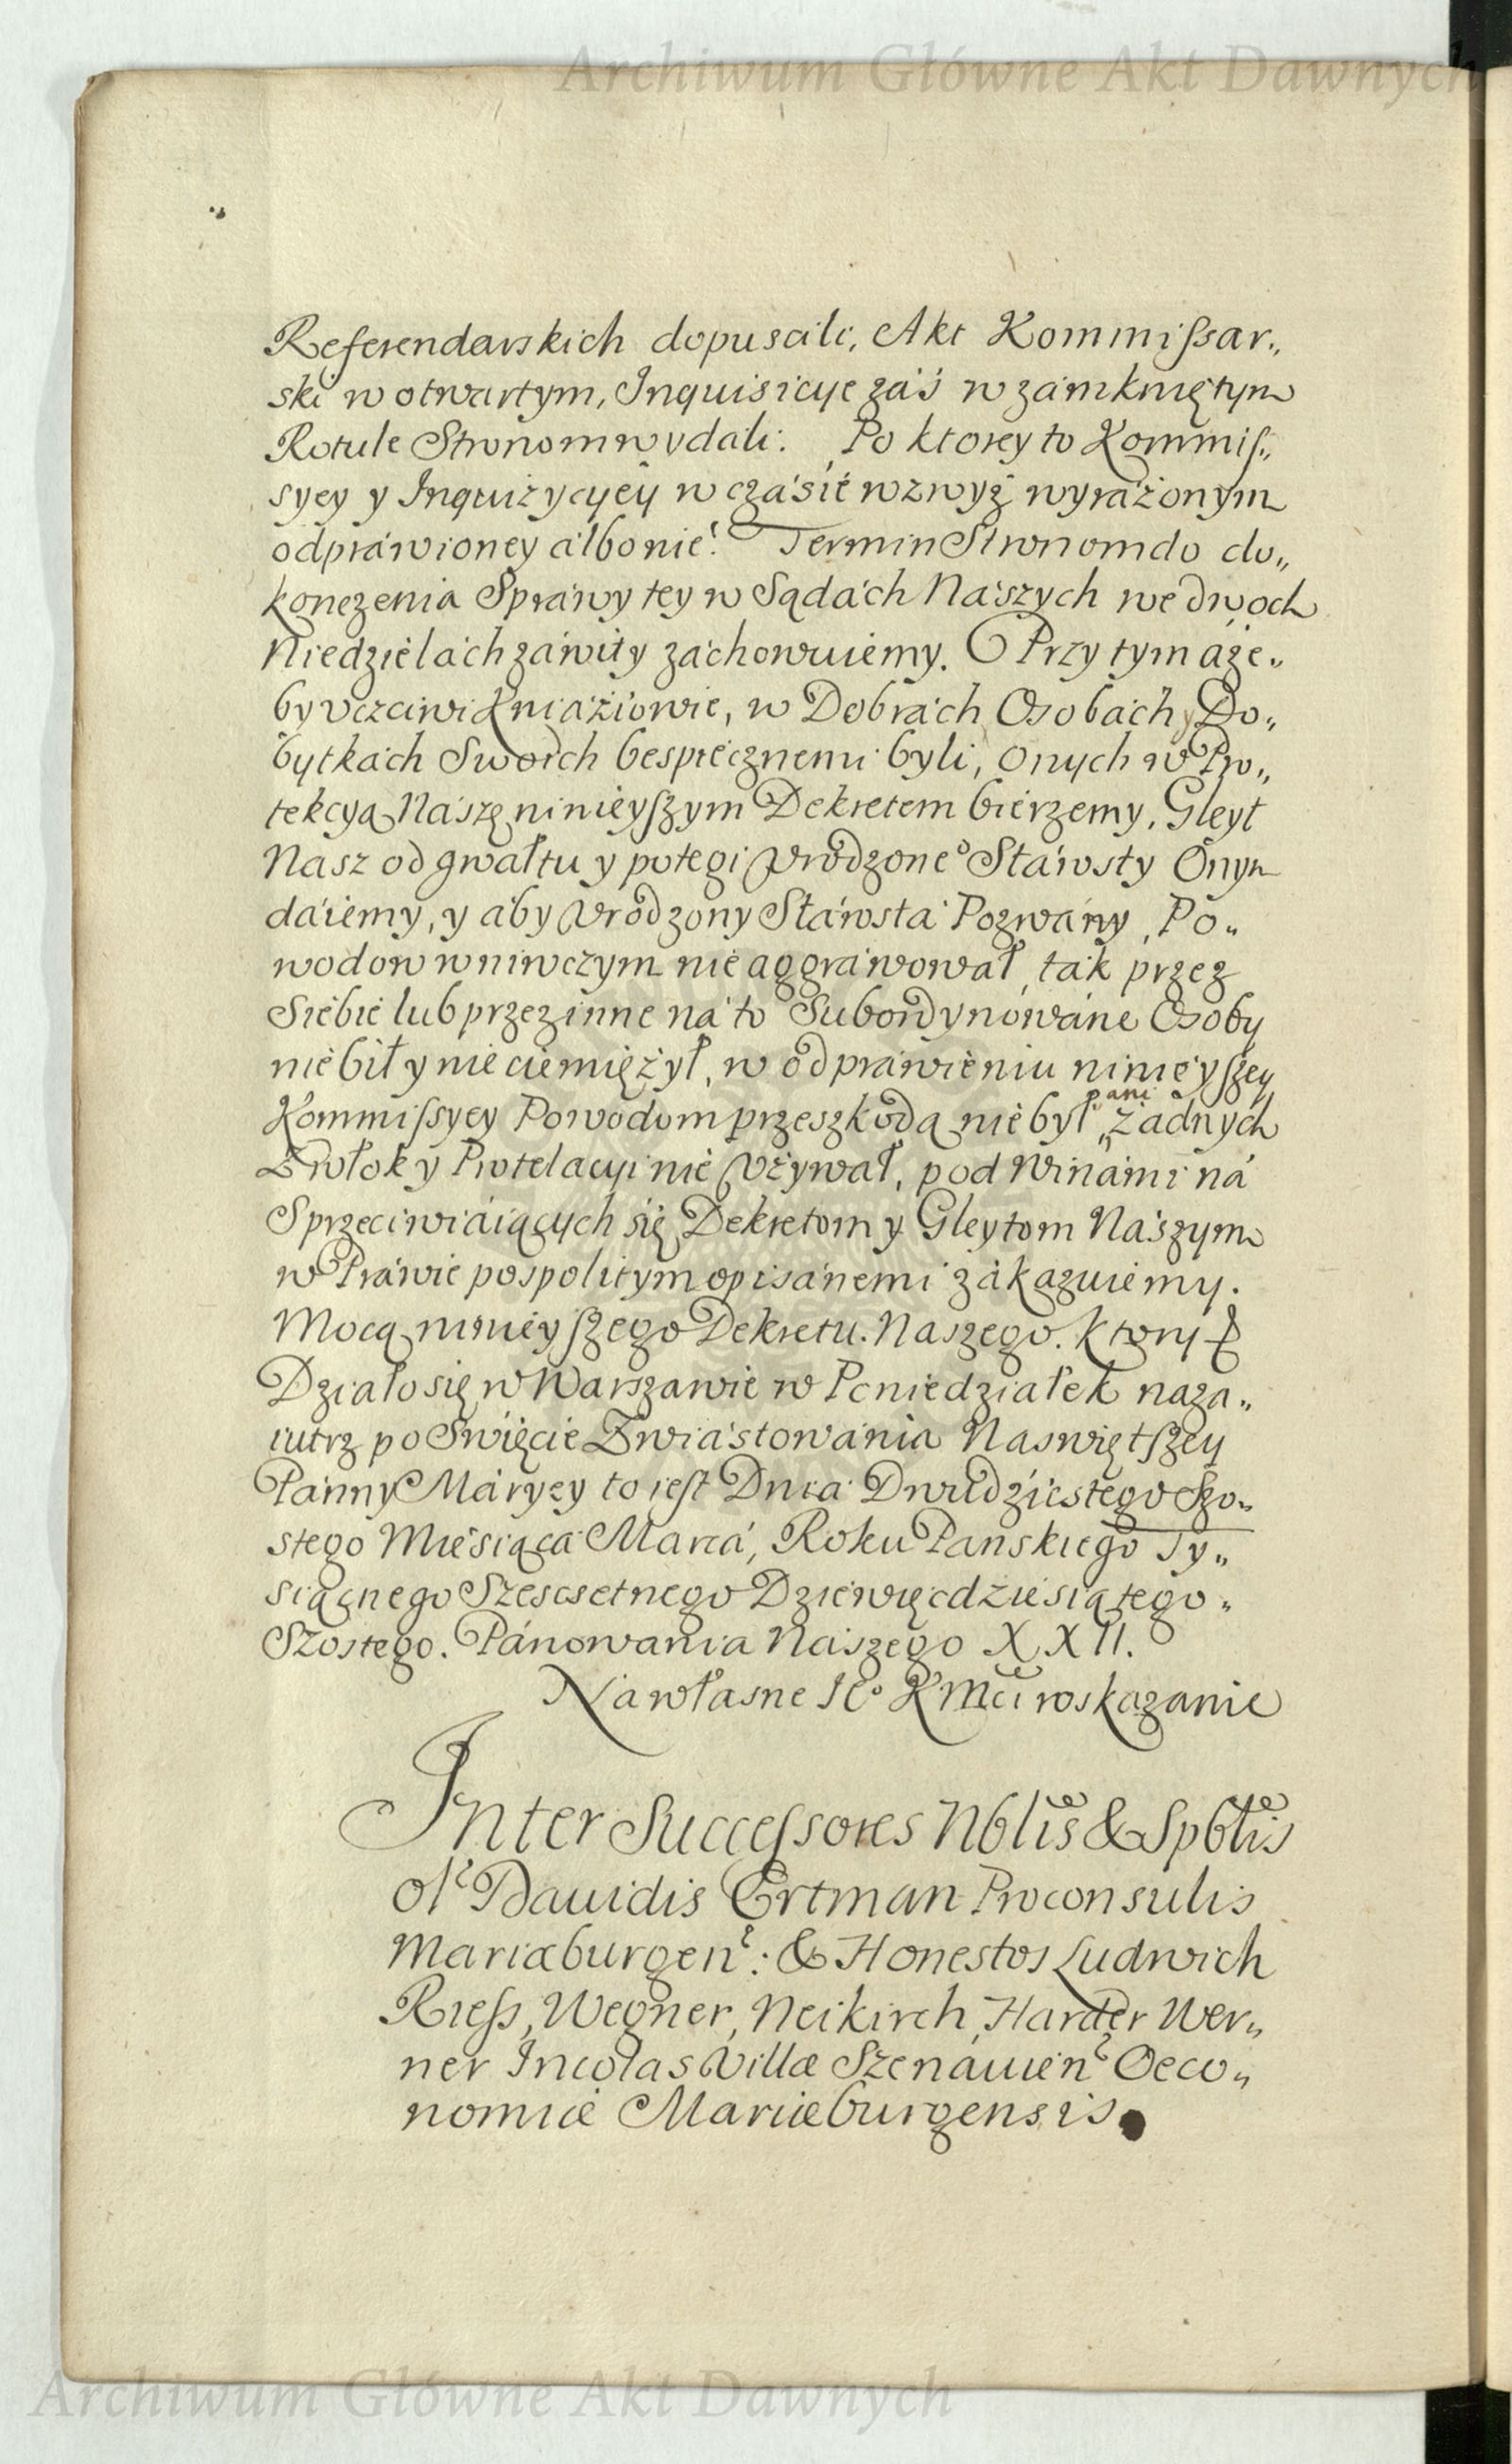 Archiwum Główne Akt Dawnych
Referendarskich dopuscili, Akt Kommissar„
ski w otwartym, Inquisicye záś w zámkniętym
Rotule Stronom wydáli. Po ktorey to Kommis„
syey y Inquizycyey w czásie wzwyż wyráżonym
odpráwioney álbo nie. Termin Stronom do do„
konczenia Spráwy tey w Sądách Nászych we dwoch
Niedzielách záwity záchowuiemy. Przy tym áże„
by vczciwi Kniáziowie, w Dobrách Osobách y Do„
bytkách Swoich bespiecznemi byli, onych w Pro„
tekcyą Nászę ninieyszym Dekretem bierzemy, Gleyt
Nasz od gwałtu y potęgi Vrodzone° Stárosty Onym
dáiemy, y áby Vrodzony Stárosta Pozwány, Po„
wodow wniwczym nie aggráwował, ták przez
Siebie lub przez inne ná to Subordynowáne Osoby
nie bił y nie ciemiężył, w odpráwieniu ninieyszey
Kommissyey Powodom przeszkodą nie był „ani żadnych
Zwłok y Protelacyi nie Vżywał, pod Winámi ná
Sprzeciwiáiących się Dekretom y Gleytom Nászym
w Práwie pospolitym opisánemi zákázuiemy.
Mocą ninieyszego Dekretu Naszego. Ktory
Działo się w Warszawie w Poniedziałek naza„
iutrz po Swięcie Zwiástowánia Naswiętszey
Pánny Máryey to iest Dniá Dwudziestego Szo„
stego Miesiącá Marcá, Roku Pánskiego Ty„
siącnego Szescsetnego Dziewięcdziesiątego„
Szostego. Pánowania Nászego XXII.
Na własne Ie° K Mci roskazanie
Inter Successores Nblis & Spblis
ol Dauidis Ertman Proconsulis
Mariæburgen: & Honestos Ludwich
Riess, Wegner, Neikirch, Harder Wer„
ner Incolas Villæ Szenáuien Oeco„
nomiæ Mariæburgensis.
Archiwum Główne Akt Dawnych